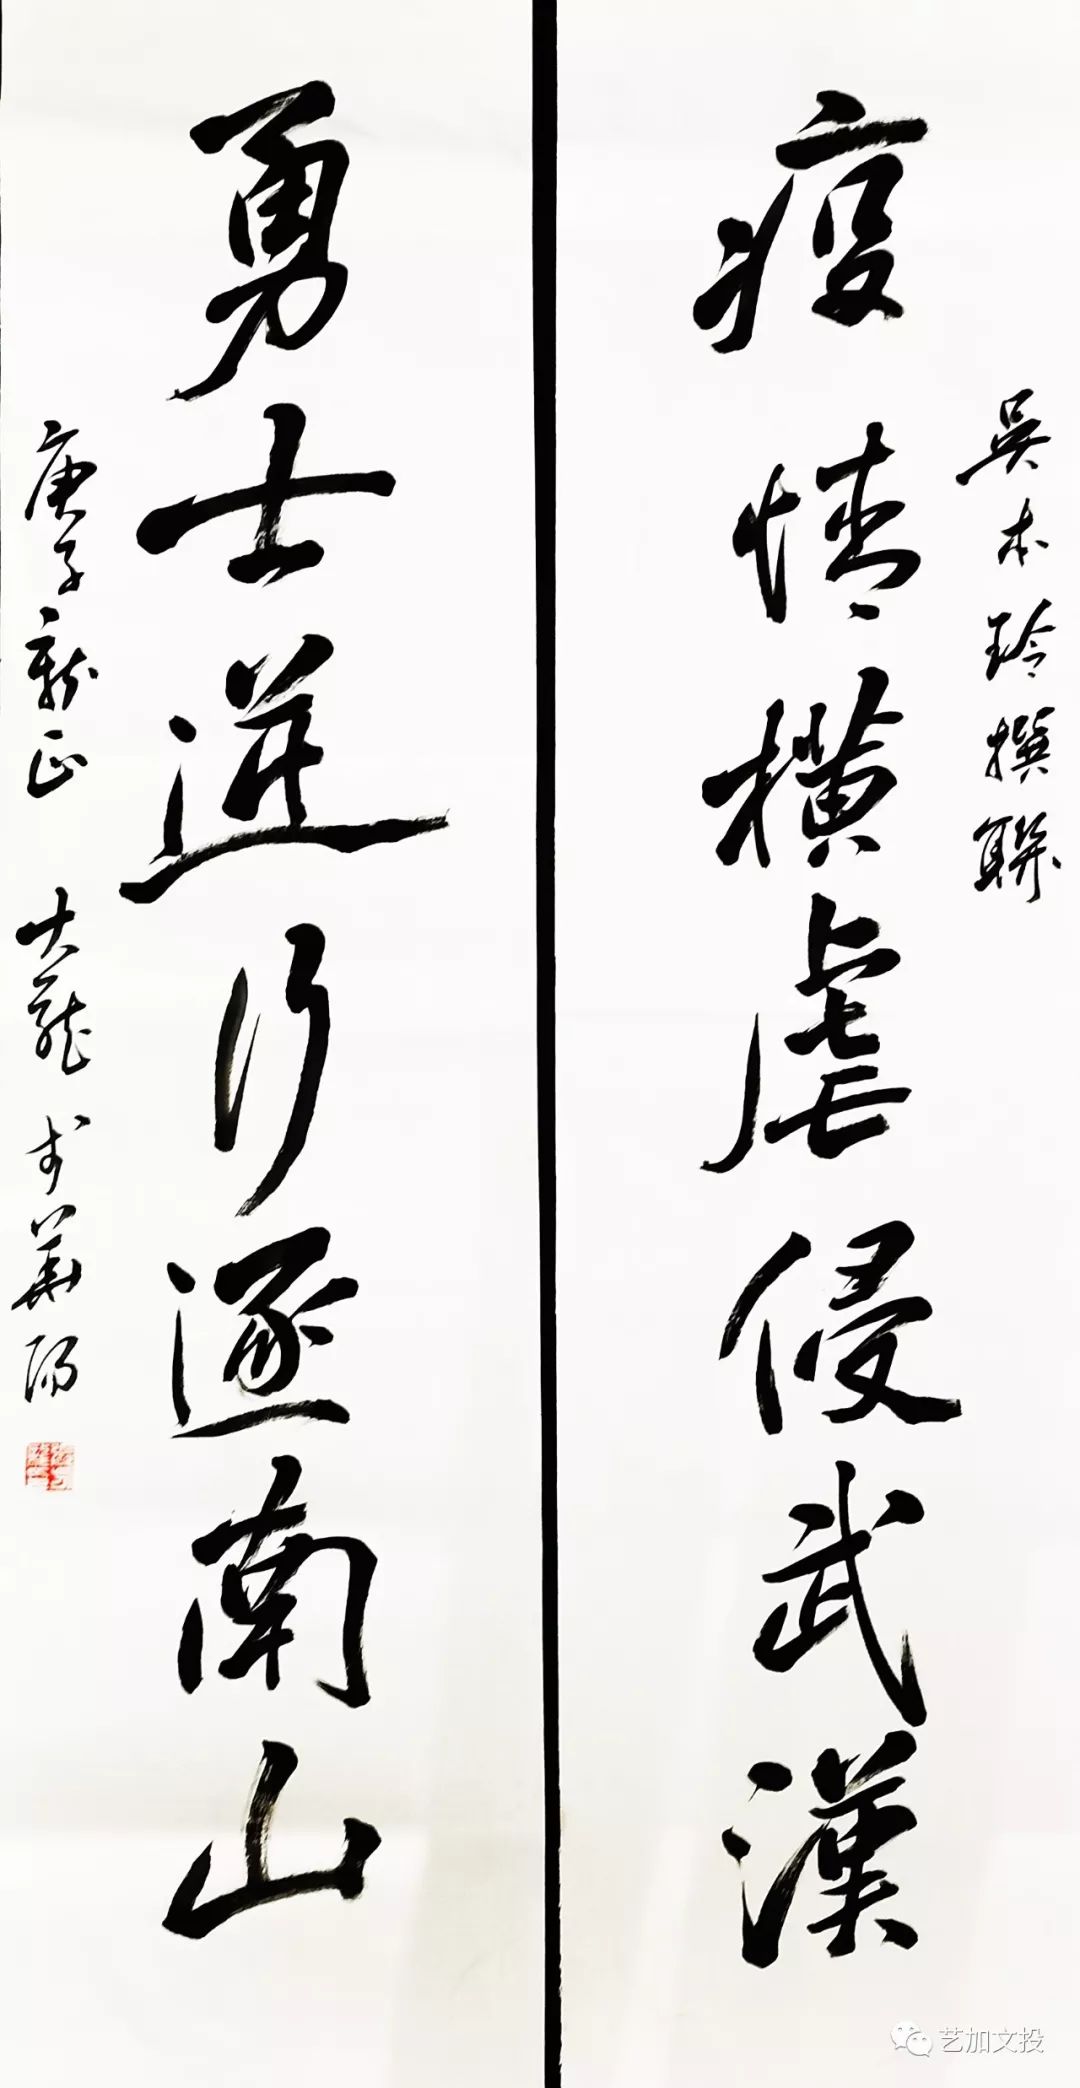 吴本玲撰聯
疫情横虐侵武漢
勇士逆行逐南山
庚子新正 大龍书華陽
艺加文投